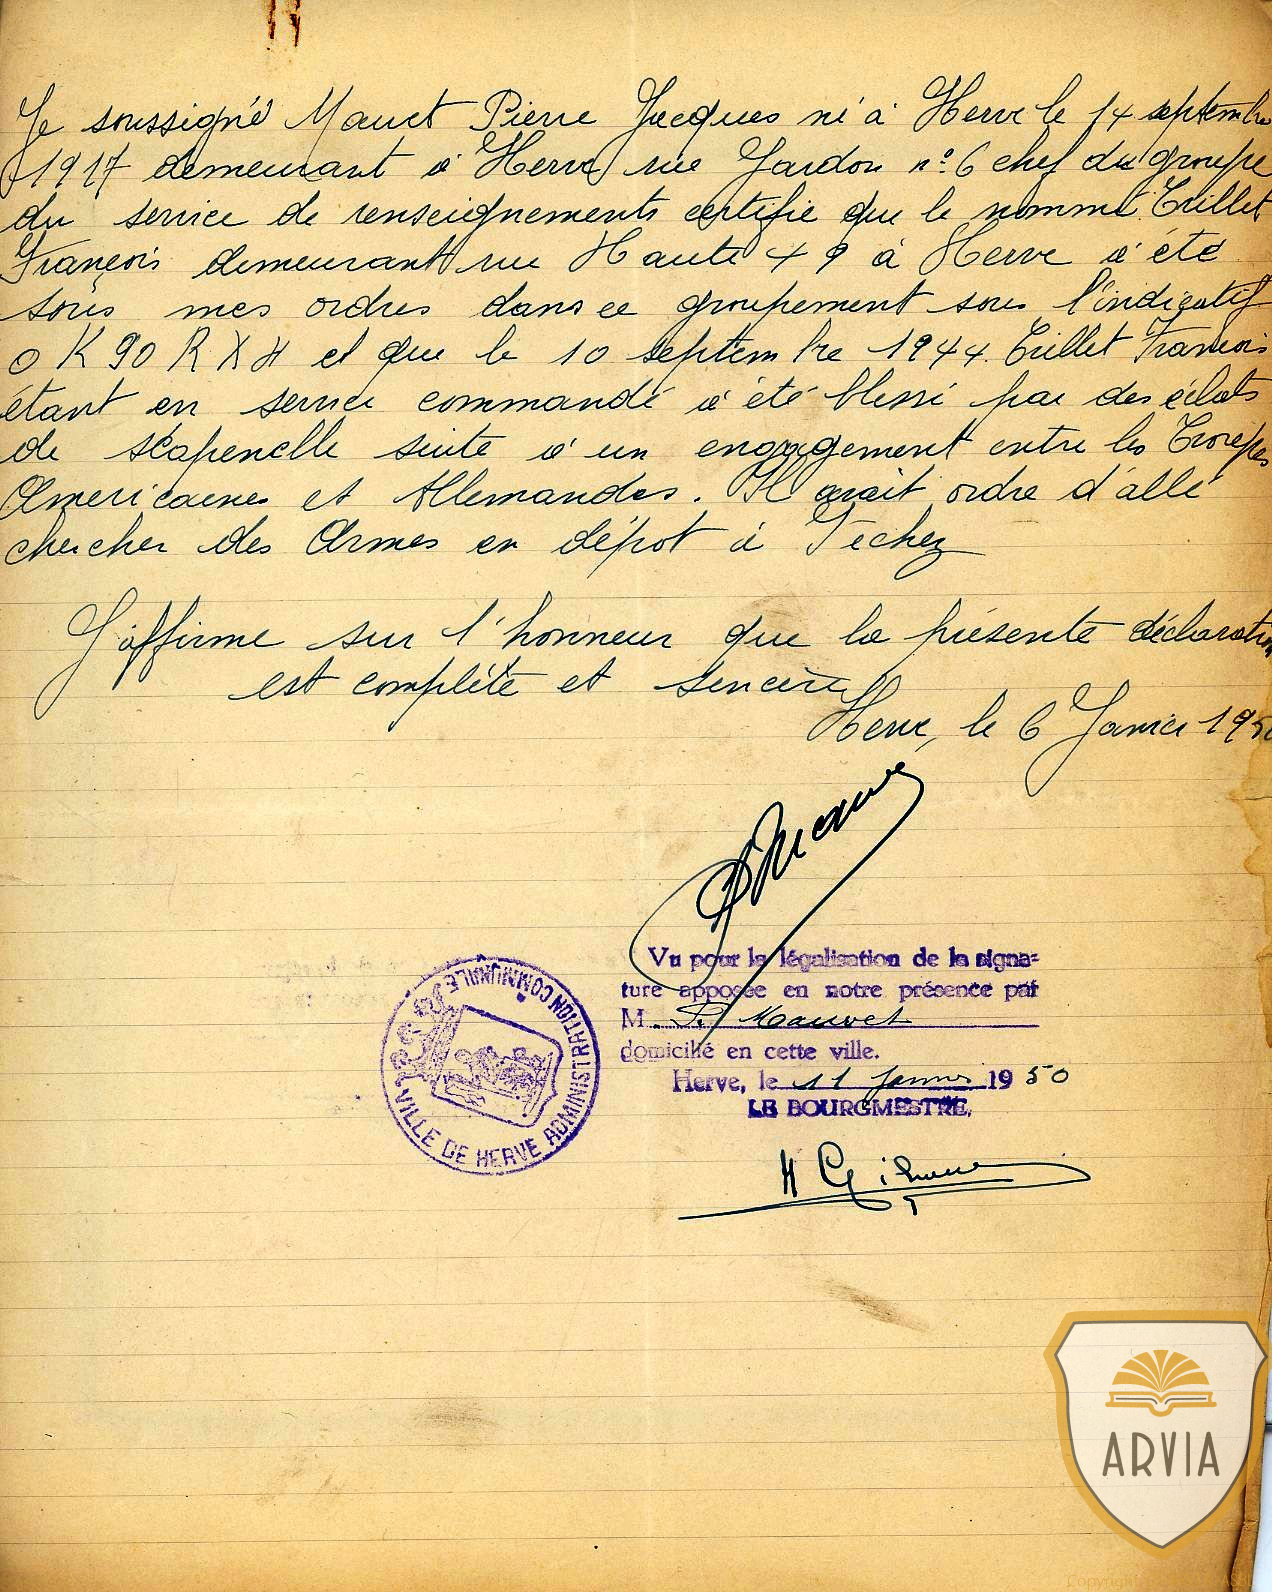 Je soussigné Mauct Pierre Jacques né à Herve le 14 septembre
1917 demeurant à Herve rue Jardon n° 6 chef du groupe
du service de renseignements certifie que le nommé Trillet
François demeurant rue Haute 49 à Herve a été
sous mes ordres dans ce groupement sous l'indicatif
O K 90 R X H et que le 10 septembre 1944. Trillet François
étant en service commandé a été blessé par des éclats
de shrapenelle suite à un engagement entre les troupes
Americaines et Allemandes. Il avait ordre d'allé
chercher des Armes en dépot à Féchez
J'affirme sur l'honneur que la présente déclaration
est complète et sencère
Herve, le 6 Janvier 1950
Vu pour la légalisation de la signa-
ture apposée en notre présence par
M. P. Mauvet
domicilié en cette ville.
Herve, le 11 janvier 1950
LE BOURGMESTRE,
VILLE DE HERVE ADMINISTRATION COMMUNALE
ARVIA
Copyright